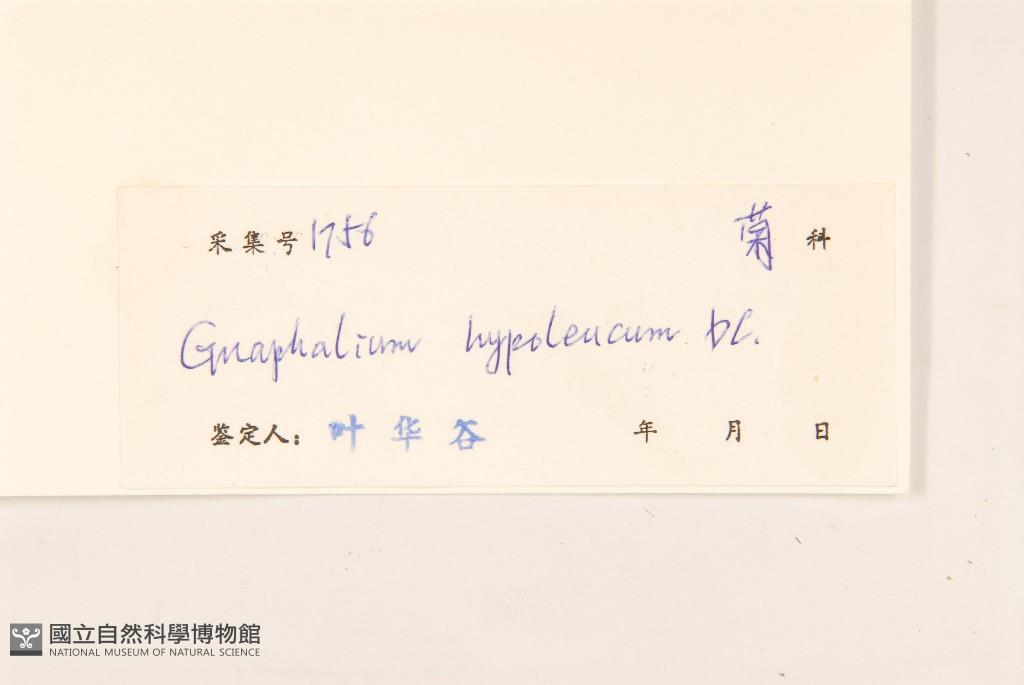 采集号 1756 菊 科
Gnaphalium hypoleucum DC.
鉴定人: 叶华谷 年 月 日
國立自然科學博物館
NATIONAL MUSEUM OF NATURAL SCIENCE